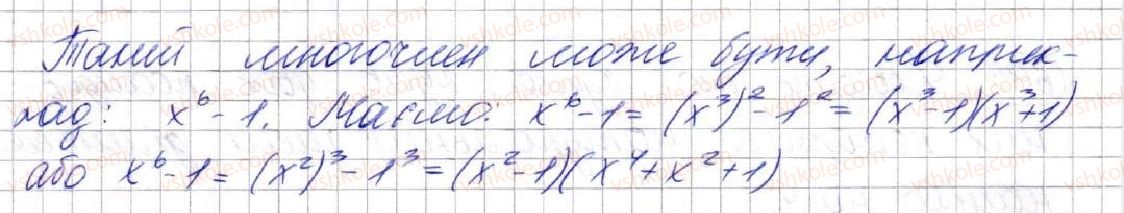 Такий многочлен може бути, наприк-
лад: x⁶ - 1. Маємо: x⁶ - 1 = (x³)² - 1² = (x³ - 1)(x³ + 1)
або x⁶ - 1 = (x²)³ - 1³ = (x² - 1)(x⁴ + x² + 1)